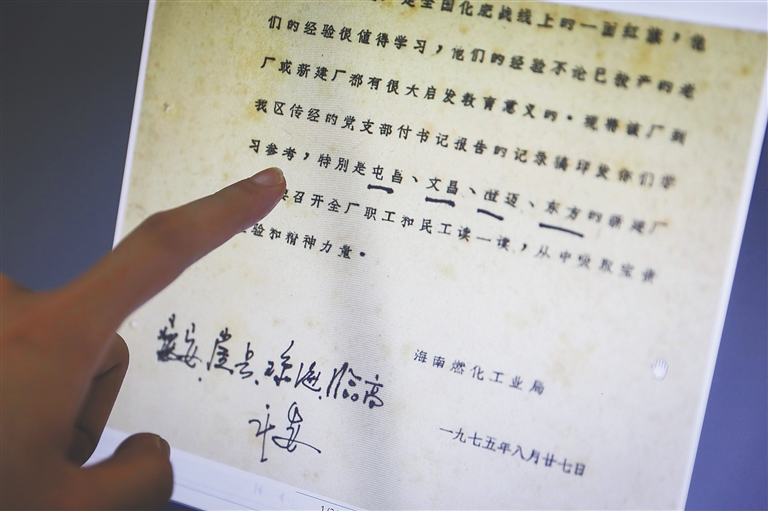 是全国化肥战线上的一面红旗，他
们的经验很值得学习，他们的经验不论已投产的老
厂或新建厂都有很大启发教育意义的。现将该厂到
我区传经的党支部付书记报告的记录稿印发你们学
习参考，特别是屯昌、文昌、迈、东方的新建厂
召开全厂职工和民工读一读，从中吸取宝贵
验和精神力量。
崖县、琼海、临高
海南燃化工业局
一九七五年八月廿七日